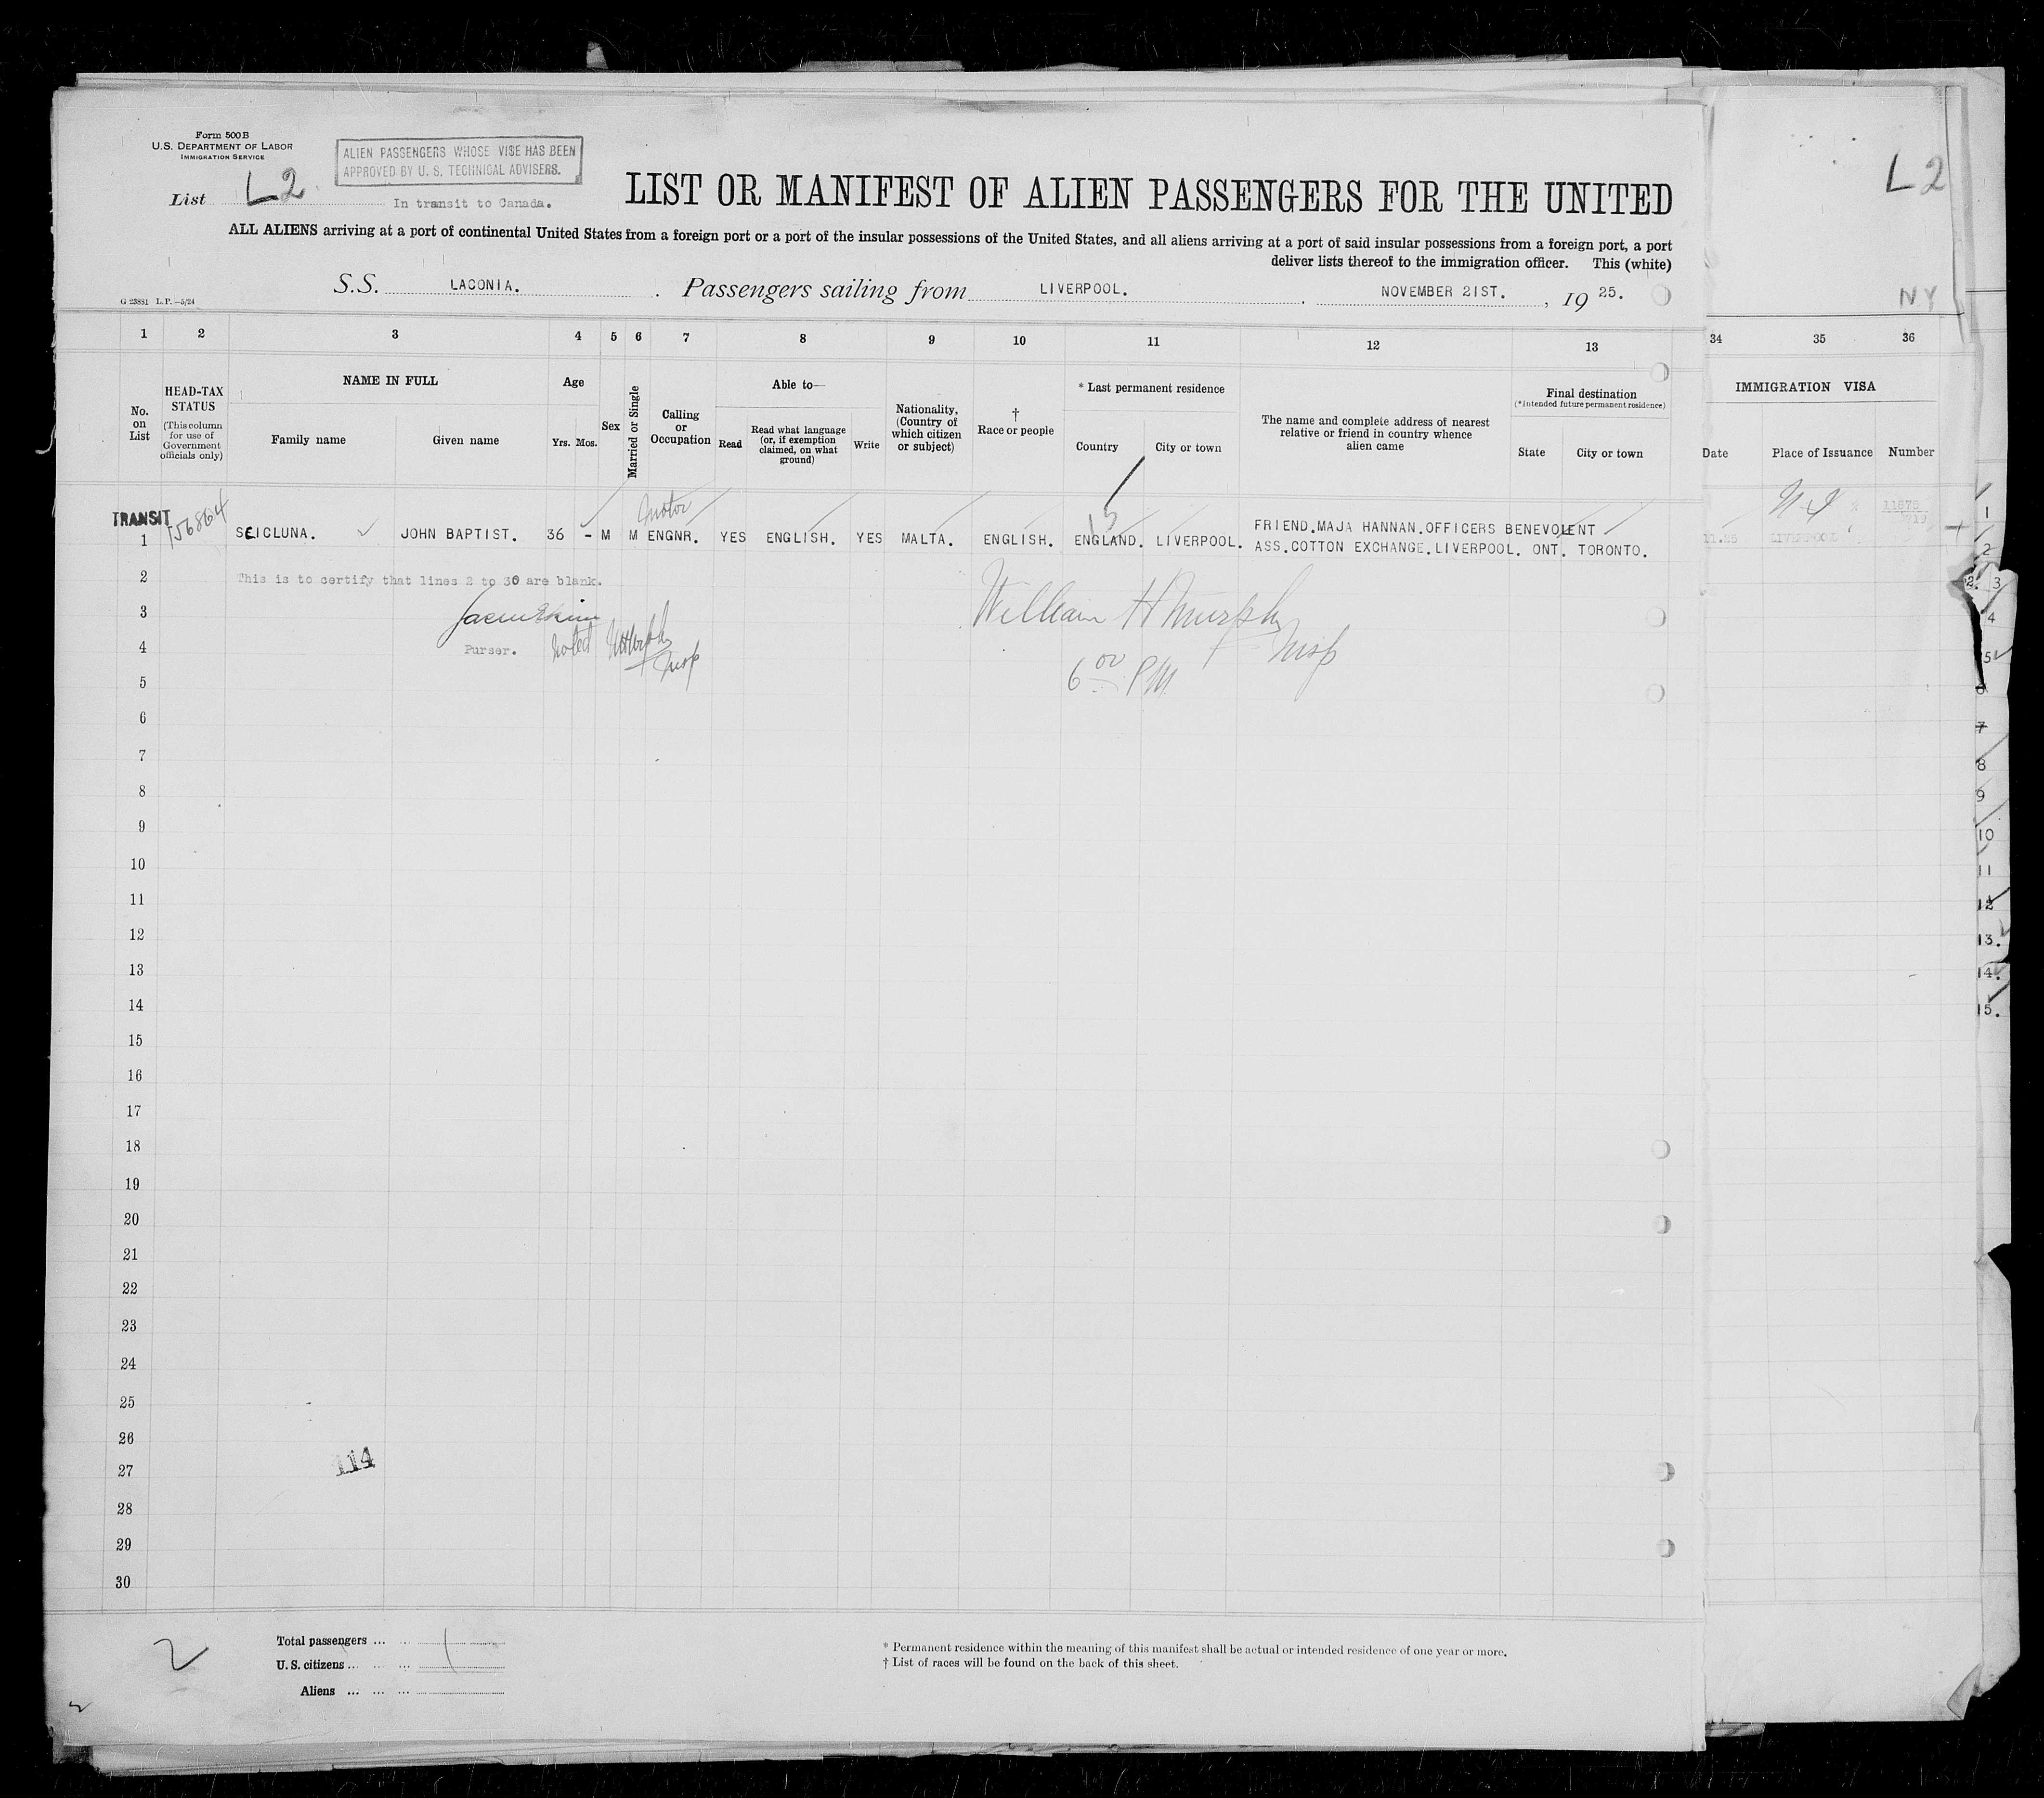 Form 500B
U.S. DEPARTMENT OF LABOR
IMMIGRATION SERVICE
ALIEN PASSENGERS WHOSE VISE HAS BEEN
APPROVED BY U. S. TECHNICAL ADVISERS.
List L2 In transit to Canada.
LIST OR MANIFEST OF ALIEN PASSENGERS FOR THE UNITED
L2
ALL ALIENS arriving at a port of continental United States from a foreign port or a port of the insular possessions of the United States, and all aliens arriving at a port of said insular possessions from a foreign port, a port
deliver lists thereof to the immigration officer. This (white)
S.S. LACONIA. Passengers sailing from LIVERPOOL. , NOVEMBER 21ST. , 19 25.
G 23881 L.P.—5/24
NY
1 2 3 4 5 6 7 8 9 10 11 12 13 34 35 36
No. on List
HEAD-TAX STATUS
(This column for use of Government officials only)
NAME IN FULL
Family name Given name
Age
Yrs. Mos.
Sex
Married or Single
Calling or Occupation
Able to—
Read
Read what language (or, if exemption claimed, on what ground)
Write
Nationality, (Country of which citizen or subject)
† Race or people
* Last permanent residence
Country City or town
The name and complete address of nearest relative or friend in country whence alien came
Final destination
(*Intended future permanent residence)
State City or town
IMMIGRATION VISA
Date Place of Issuance Number
TRANSIT
156864
Motor
1 SEICLUNA. JOHN BAPTIST. 36 - M M ENGNR. YES ENGLISH. YES MALTA. ENGLISH. ENGLAND. LIVERPOOL. FRIEND.MAJA HANNAN.OFFICERS BENEVOLENT
ASS.COTTON EXCHANGE.LIVERPOOL. ONT. TORONTO.
11.25 LIVERPOOL
2 This is to certify that lines 2 to 30 are blank.
3 William H Murphy
4 Purser. Noted Insp Insp
5 6 00 PM
6
7
8
9
10
11
12
13
14
15
16
17
18
19
20
21
22
23
24
25
26
27
28
29
30
114
1
2
3
4
5
6
7
8
9
10
11
12
13.
14.
15.
2
Total passengers ... ... 1
U. S. citizens ... ... ...
Aliens ... ... ...
* Permanent residence within the meaning of this manifest shall be actual or intended residence of one year or more.
† List of races will be found on the back of this sheet.